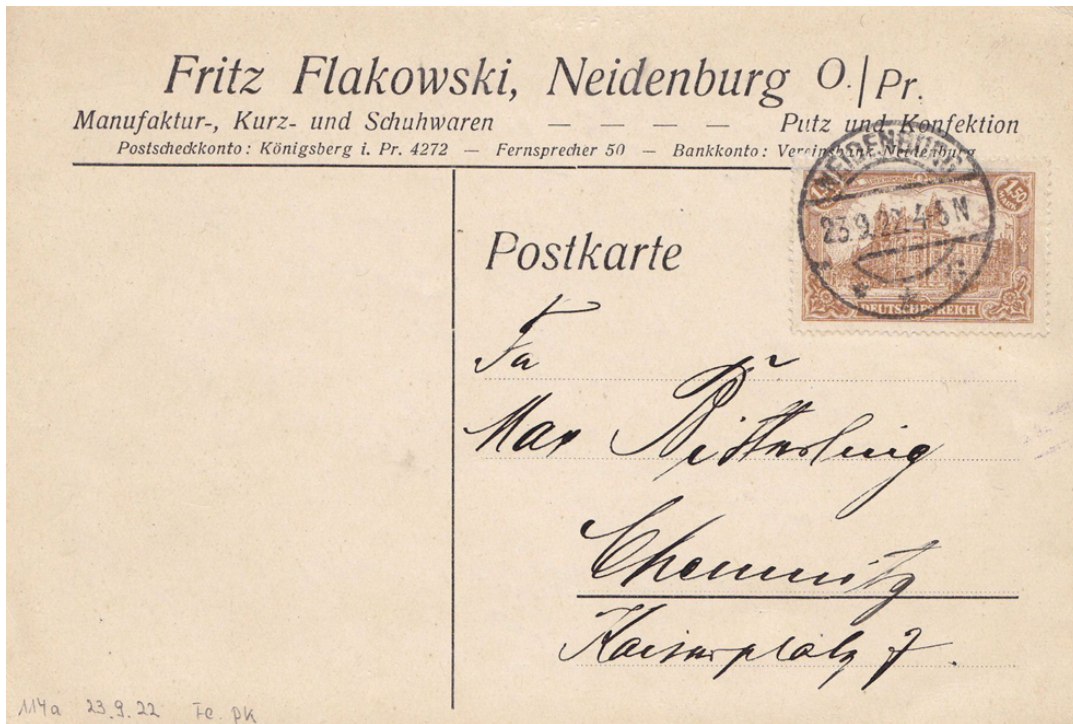 Fritz Flakowski, Neidenburg O./Pr.
Manufaktur-, Kurz- und Schuhwaren — — — — Putz und Konfektion
Postscheckkonto: Königsberg i. Pr. 4272 — Fernsprecher 50 — Bankkonto: Vereinsbank Neidenburg
NEIDENBURG
23.9.22. 4-5 N
1,50
MARK
DEUTSCHES REICH
Postkarte
Fa
Max
Chemnitz
Kaiserplatz 7.
114a 23.9.22 Fe. PK